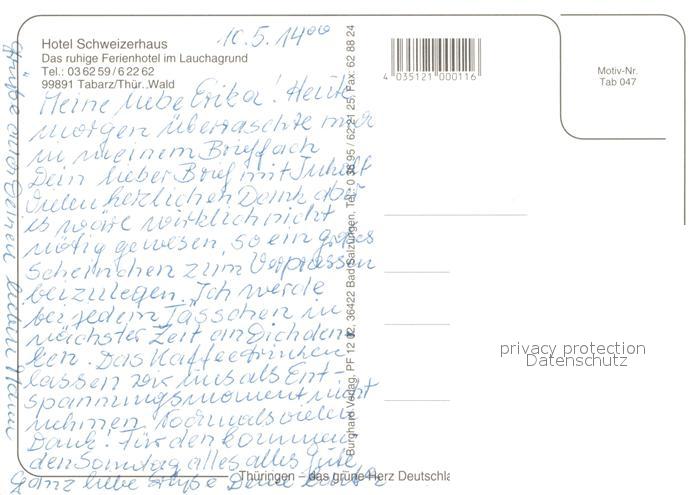 10.5. 14⁰⁰
Hotel Schweizerhaus
Das ruhige Ferienhotel im Lauchagrund
Tel.: 03 62 59 / 6 22 62
99891 Tabarz/Thür. Wald
Meine liebe Erika! Heute
morgen überraschte mich
in meinem Brieffach
Dein lieber Brief mit Inhalt
Vielen herzlichen Dank aber
es wäre wirklich nicht
nötig gewesen, so ein großes
Scheinchen zum Verprassen
beizulegen. Ich werde
bei jedem Tässchen in
nächster Zeit an Dich den-
ken. Das Kaffeetrinken
lassen wir uns als Ent-
spannungsmoment nicht
nehmen. Nochmals vielen
Dank! Für den kommen
den Sonntag alles alles Gute
Ganz liebe Grüße Deine
Grüße lieben Mann
Burghard Verlag, PF 12 22, 36422 Bad Salzungen, Tel.: 0 36 95 / 62 21 25, Fax: 62 88 24
4 035121 000116
Motiv-Nr.
Tab 047
privacy protection
Datenschutz
Thüringen – das grüne Herz Deutschla